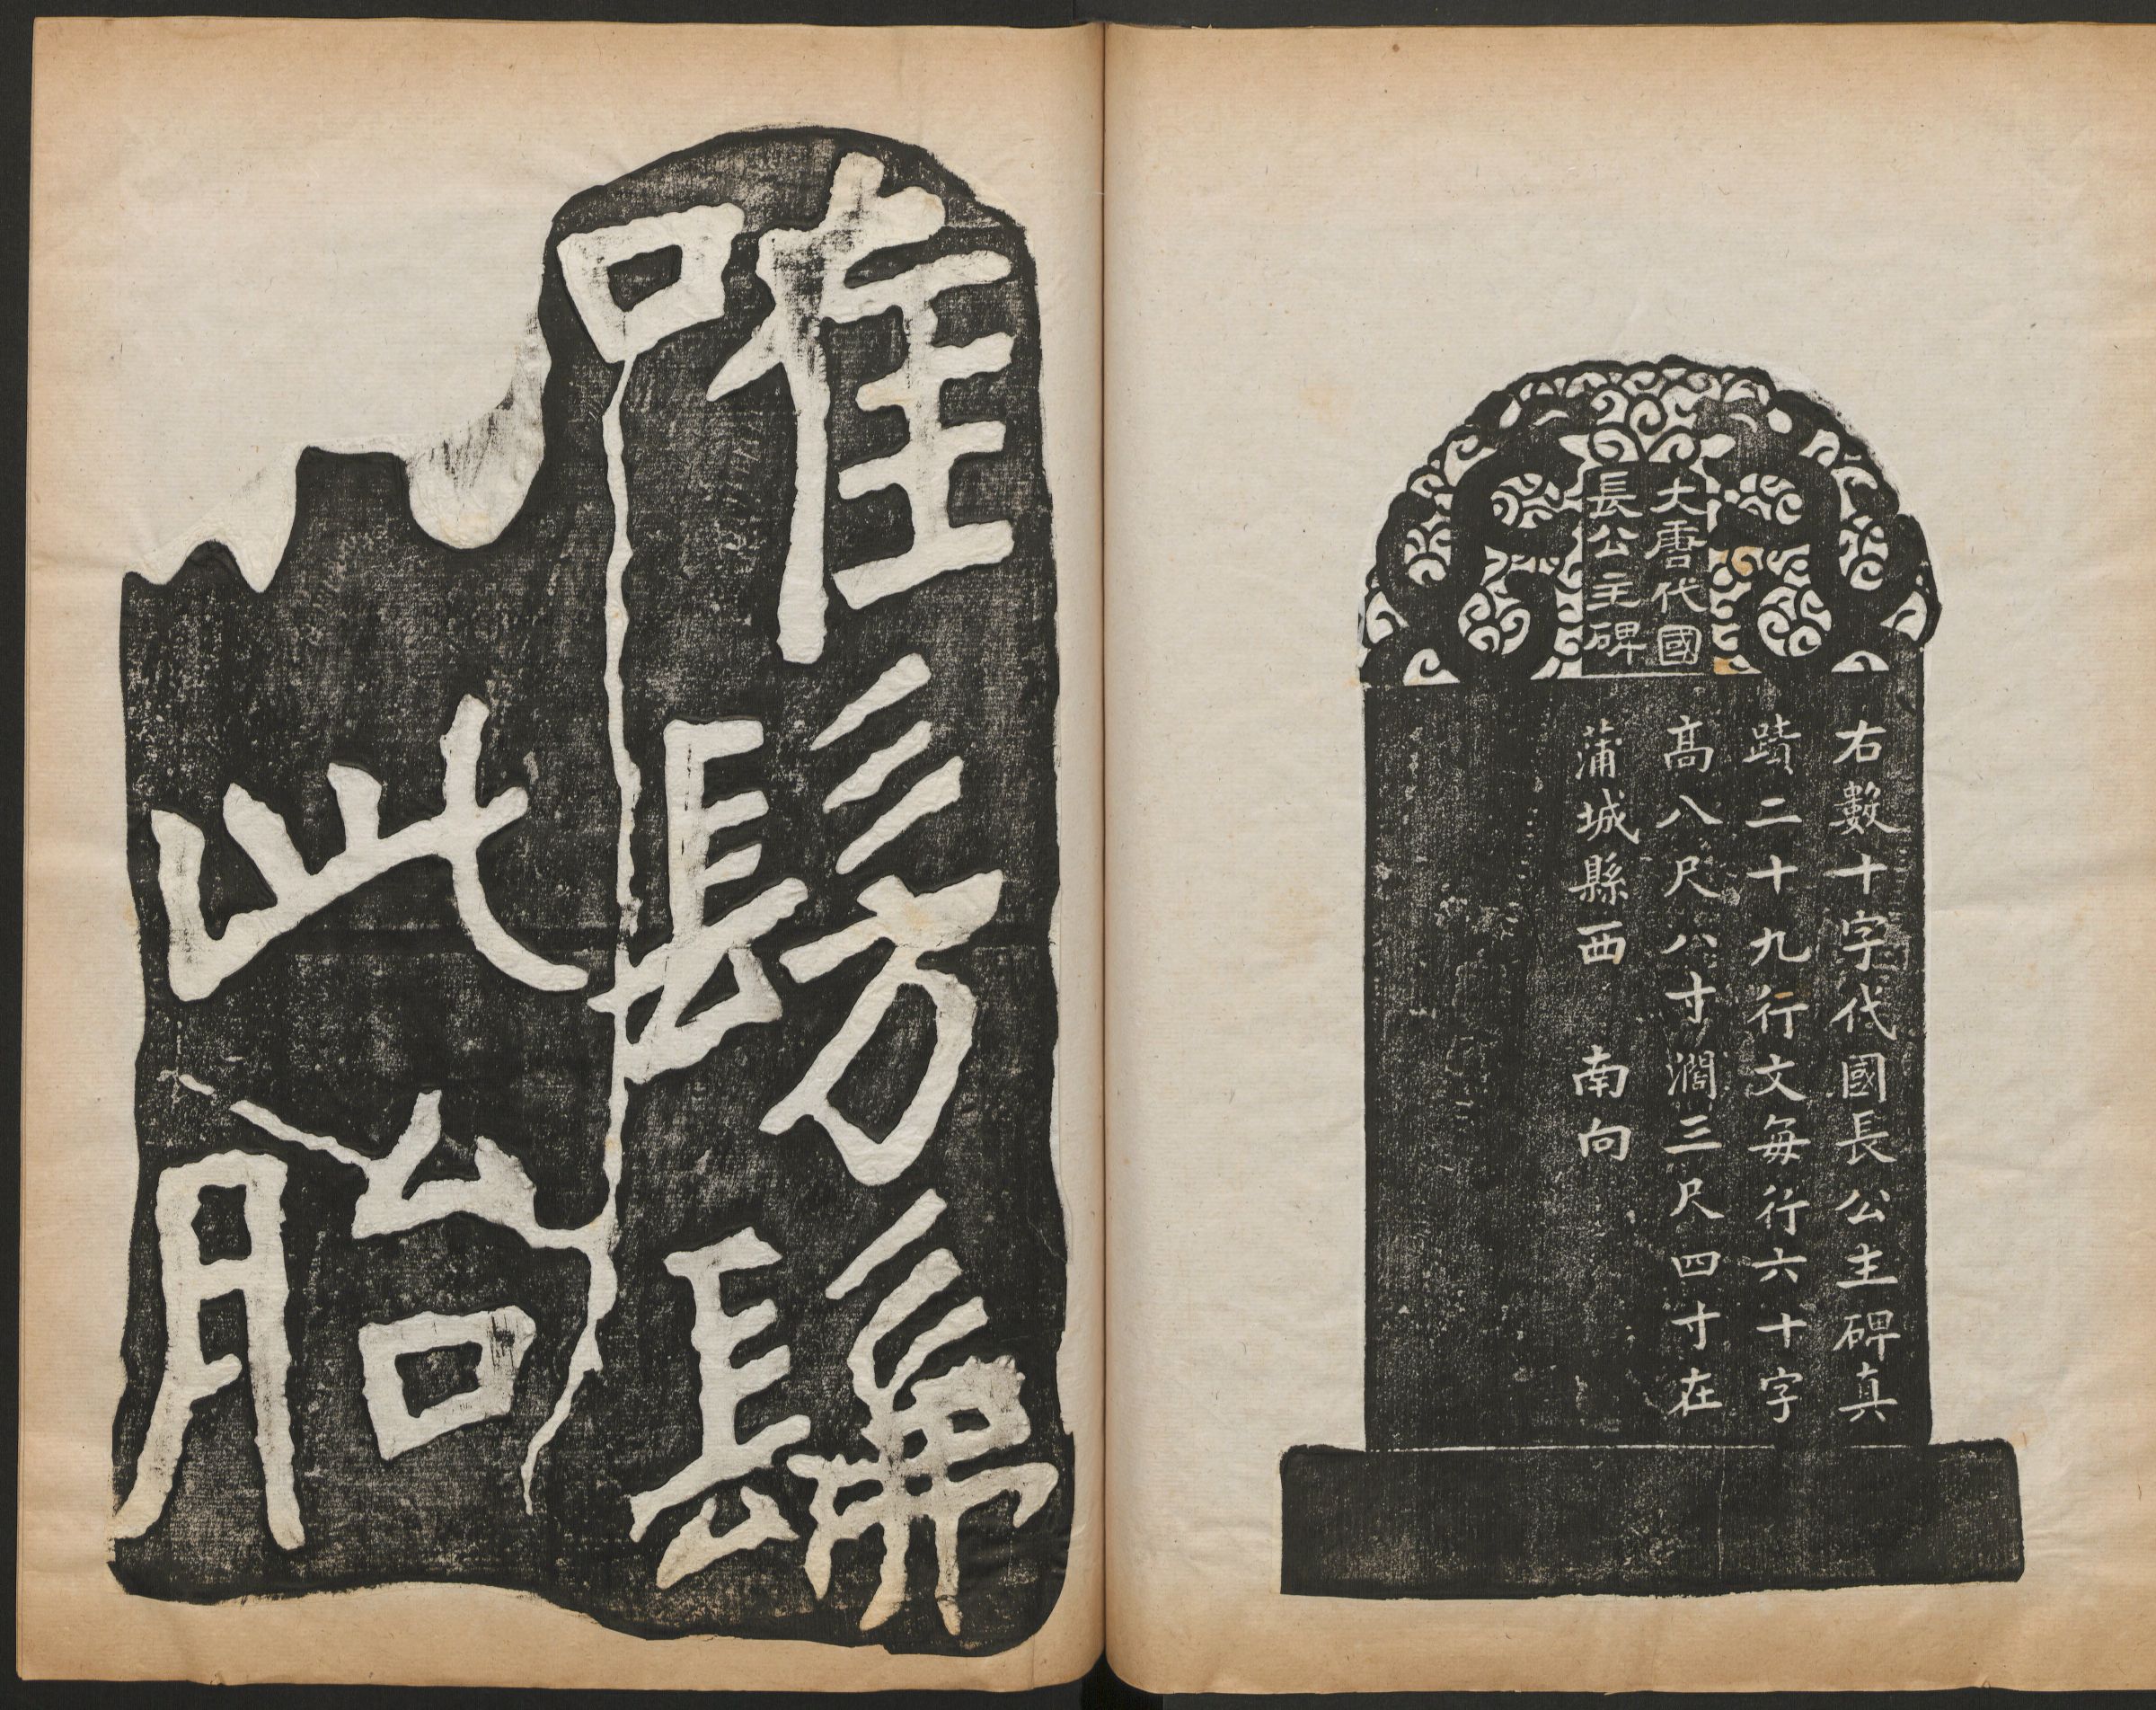 大唐代國
長公主碑
右數十字代國長公主碑真
蹟二十九行文每行六十字
高八尺八寸濶三尺四寸在
蒲城縣西 南向
唯髣髴
此胎